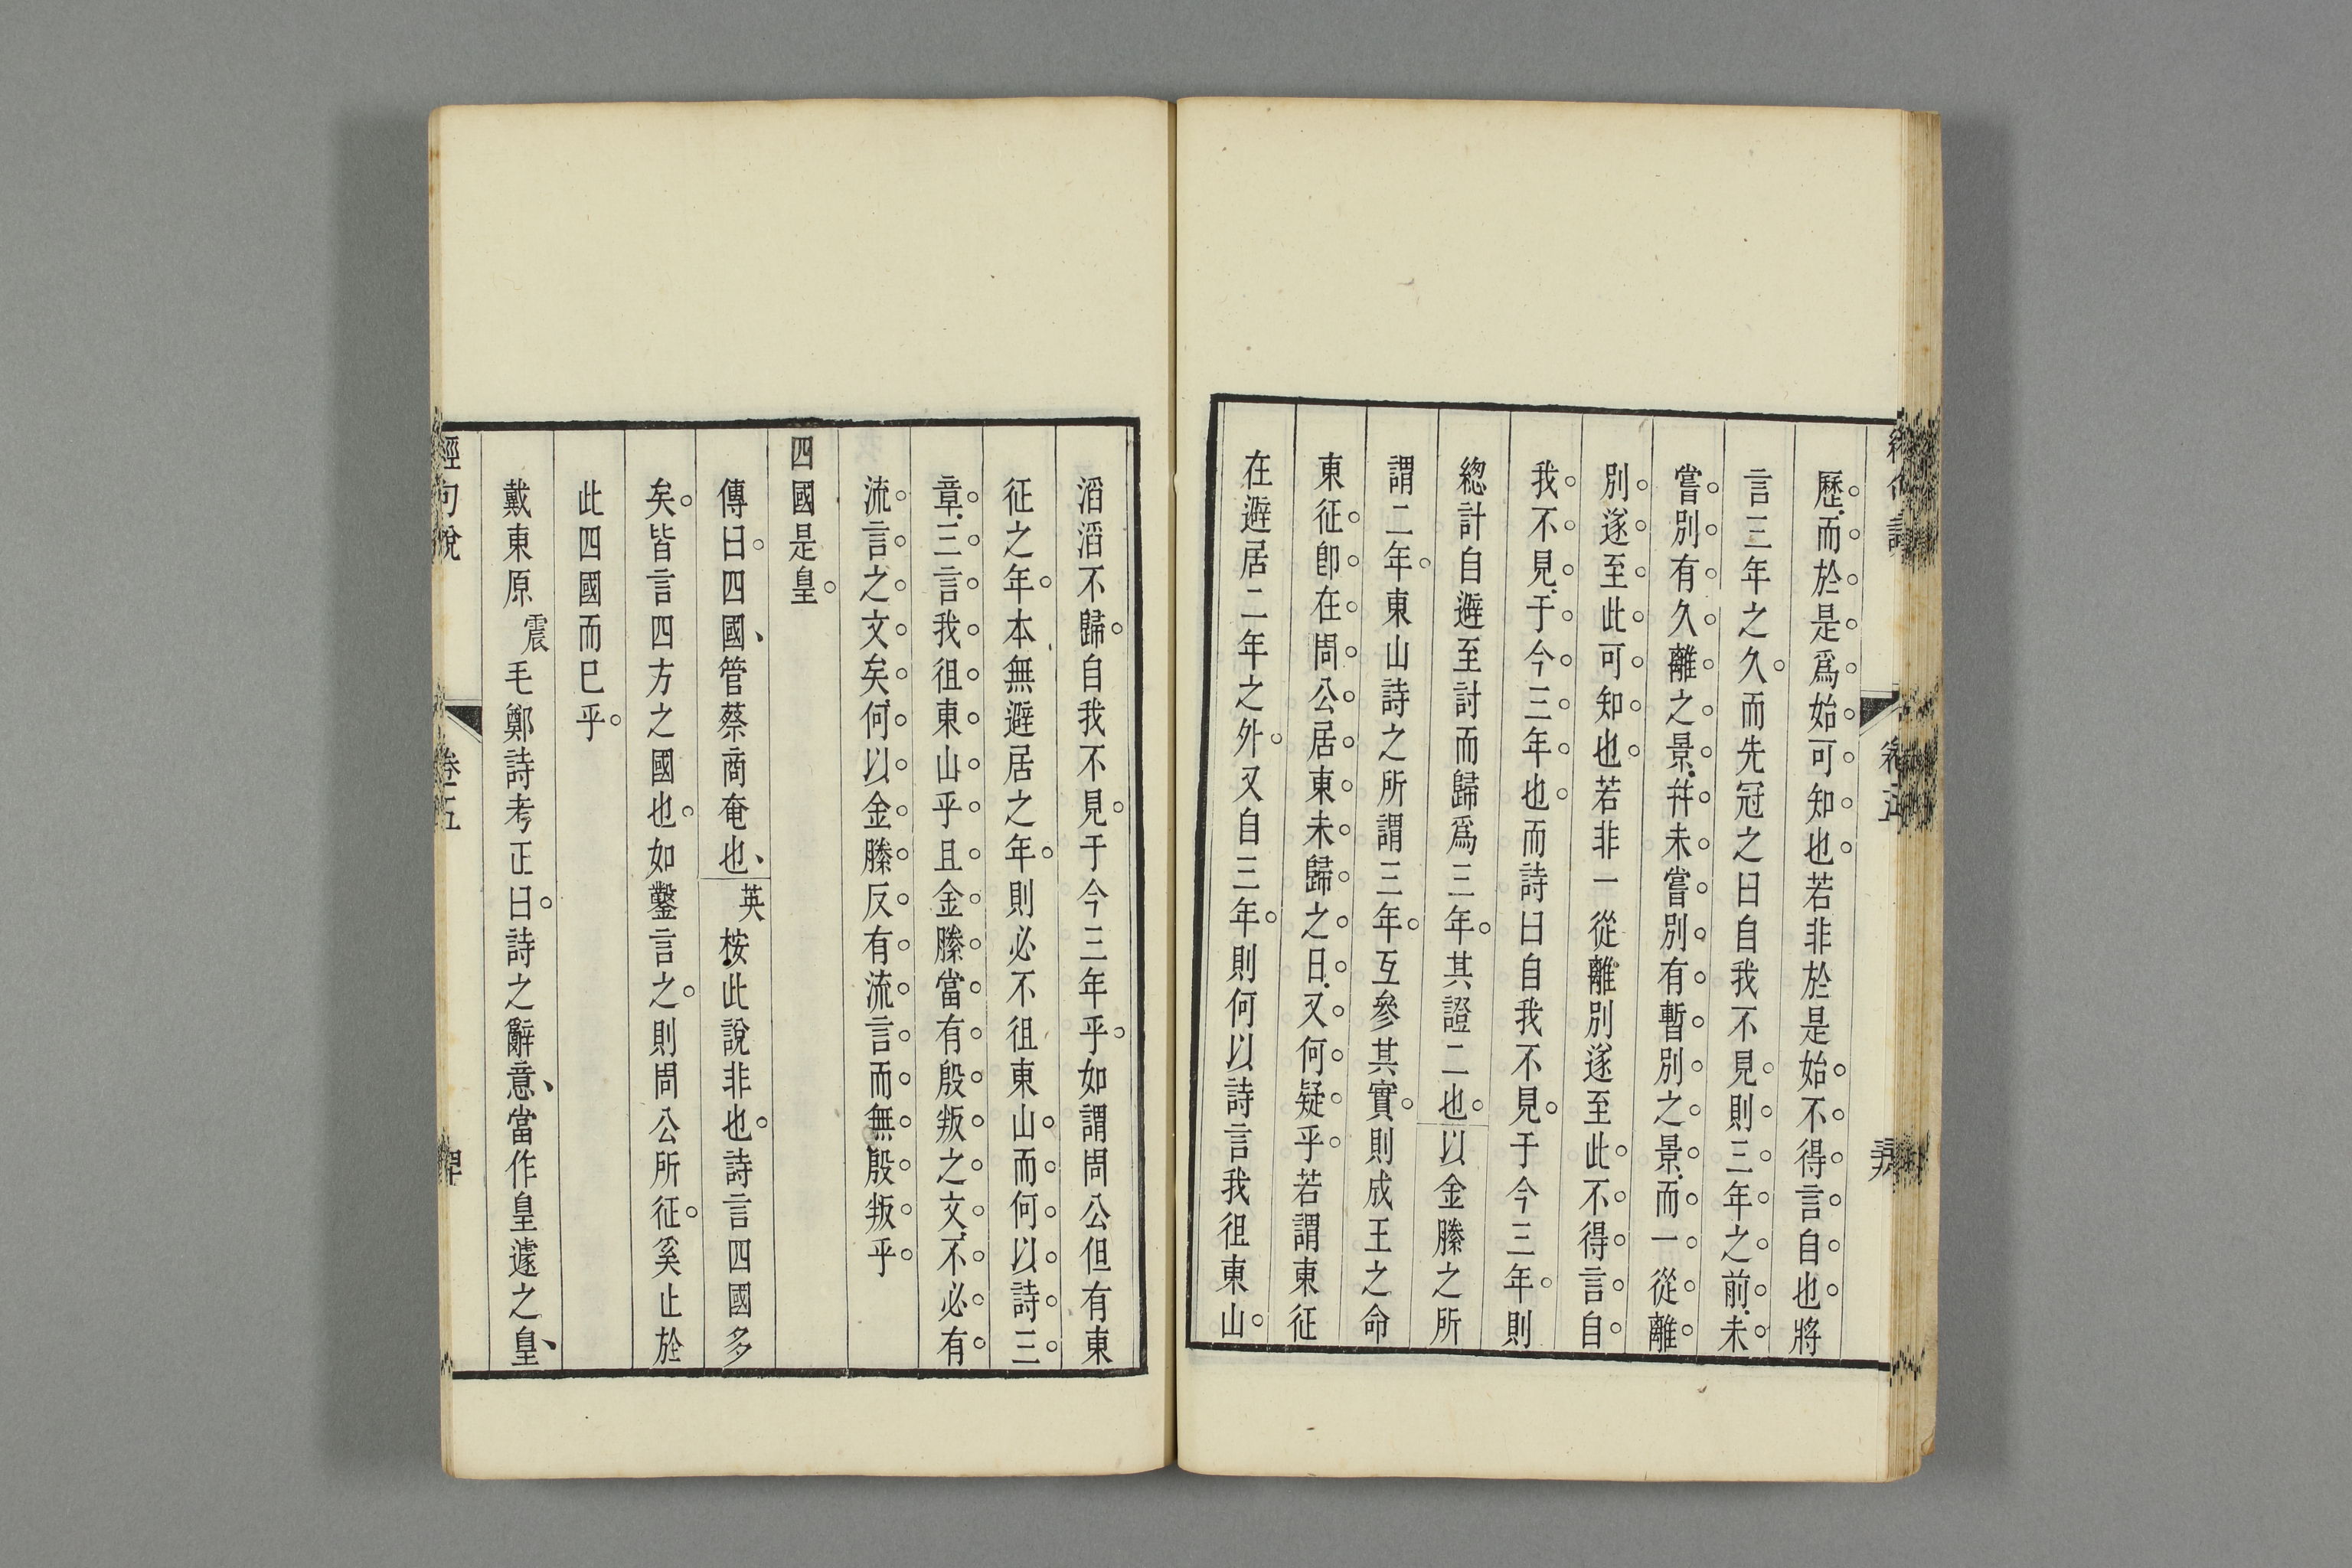 歷而於是爲始可知也若非於是始不得言自也將
言三年之久而先冠之曰自我不見則三年之前未
嘗別有久離之景幷未嘗別有暫別之景而一從離
別遂至此可知也若非一從離別遂至此不得言自
我不見于今三年也而詩曰自我不見于今三年則
總計自避至討而歸爲三年其證二也以金縢之所
謂二年東山詩之所謂三年互參其實則成王之命
東征卽在周公居東未歸之日又何疑乎若謂東征
在避居二年之外又自三年則何以詩言我徂東山
滔滔不歸自我不見于今三年乎如謂周公但有東
征之年本無避居之年則必不徂東山而何以詩三
章三言我徂東山乎且金縢當有殷叛之文不必有
流言之文矣何以金縢反有流言而無殷叛乎
四國是皇
傳曰四國管蔡商奄也英桉此說非也詩言四國多
矣皆言四方之國也如鑿言之則周公所征奚止於
此四國而巳乎
戴東原震毛鄭詩考正曰詩之辭意當作皇遽之皇
經句說 卷五